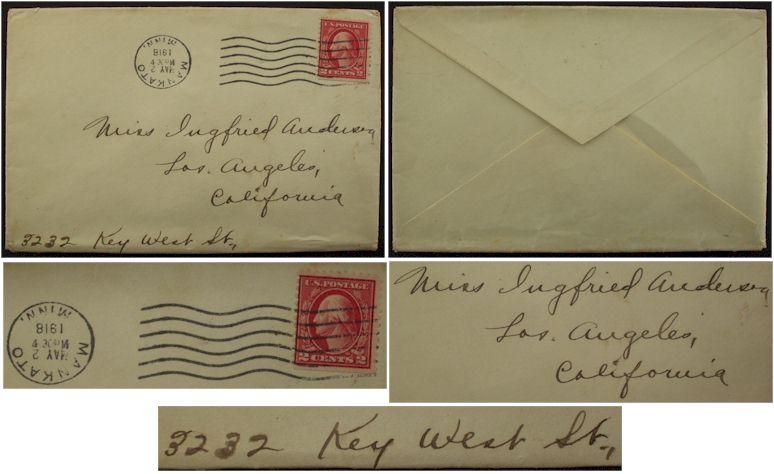 MINN.
1918
MAY 2
MANKATO
U.S. POSTAGE
2 CENTS 2
Miss Ingfried Anderson
Los. Angeles,
California
3232 Key West St.,
MINN.
1918
MAY 2
MANKATO
U.S. POSTAGE
2 CENTS 2
Miss Ingfried Anderson
Los. Angeles,
California
3232 Key West St.,